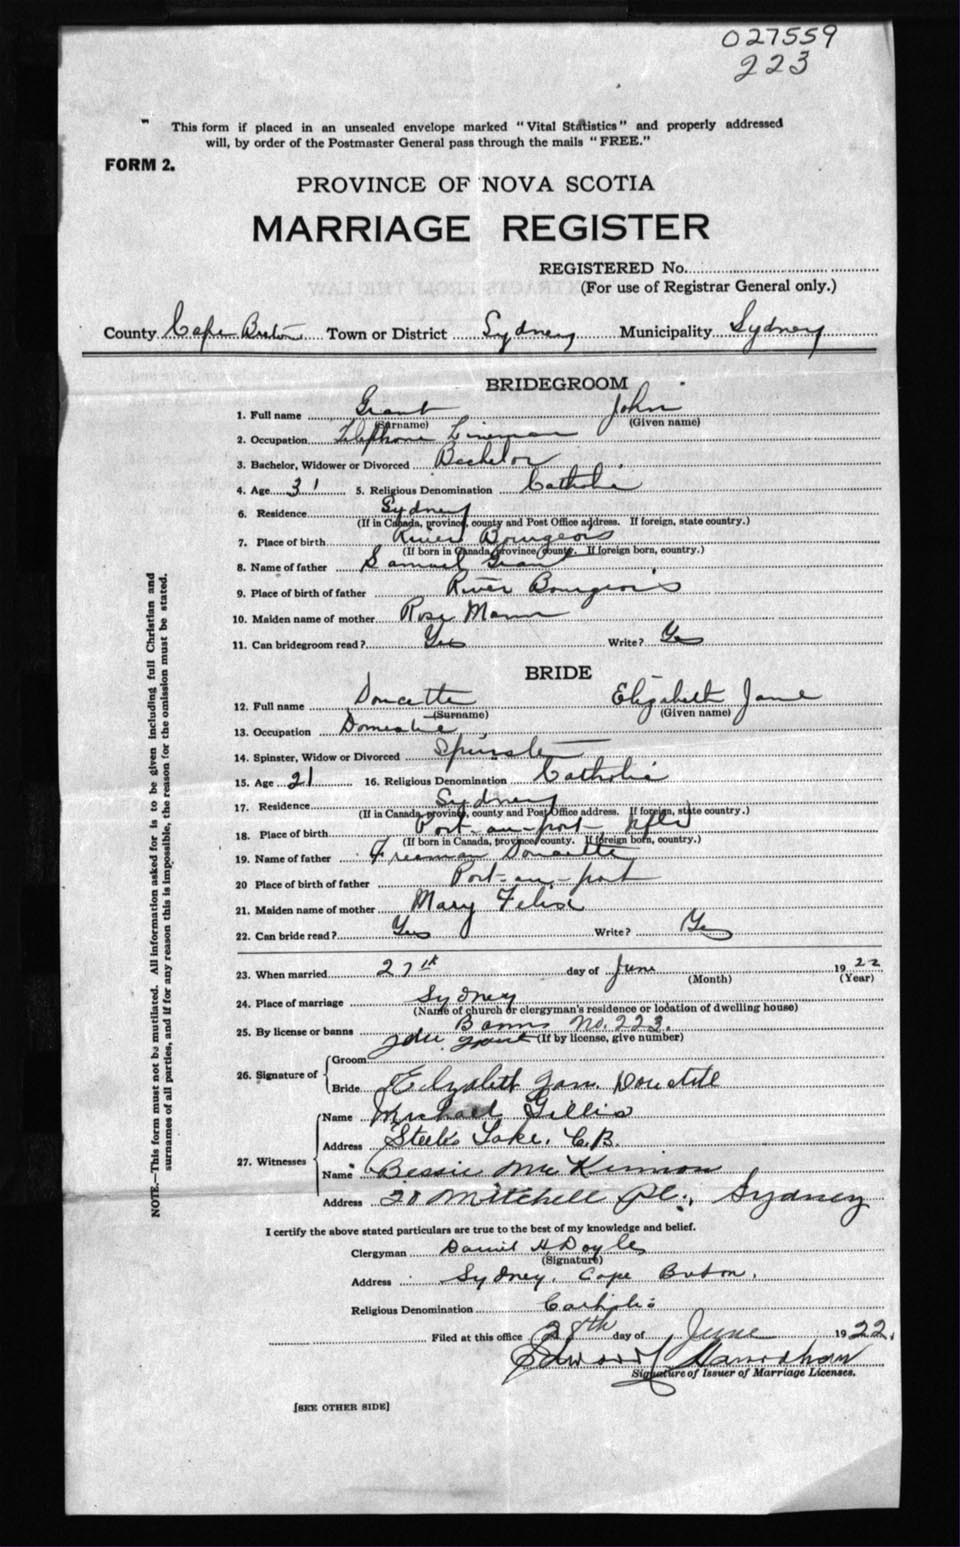 027559
223
This form if placed in an unsealed envelope marked "Vital Statistics" and properly addressed
will, by order of the Postmaster General pass through the mails "FREE."
FORM 2.
PROVINCE OF NOVA SCOTIA
MARRIAGE REGISTER
REGISTERED No.
(For use of Registrar General only.)
County Cape Breton Town or District Sydney Municipality Sydney
BRIDEGROOM
1. Full name Grant John
(Surname) (Given name)
2. Occupation Telephone Lineman
3. Bachelor, Widower or Divorced Bachelor
4. Age 31 5. Religious Denomination Catholic
6. Residence Sydney
(If in Canada, province, county and Post Office address. If foreign, state country.)
7. Place of birth River Bourgeois
(If born in Canada, province county. If foreign born, country.)
8. Name of father Samuel Grant
9. Place of birth of father River Bourgeois
10. Maiden name of mother Rose Mann
11. Can bridegroom read? Yes Write? Yes
BRIDE
12. Full name Doucette Elizabeth Jane
(Surname) (Given name)
13. Occupation Domestic
14. Spinster, Widow or Divorced Spinster
15. Age 21 16. Religious Denomination Catholic
17. Residence Sydney
(If in Canada, province, county and Post Office address. If foreign, state country.)
18. Place of birth Port-au-port Nfld
(If born in Canada, province county. If foreign born, country.)
19. Name of father Freeman Doucette
20 Place of birth of father Port-au-port
21. Maiden name of mother Mary Felix
22. Can bride read? Yes Write? Yes
23. When married 27th day of June 1922
(Month) (Year)
24. Place of marriage Sydney
(Name of church or clergyman's residence or location of dwelling house)
25. By license or banns Banns No. 223.
(If by license, give number)
26. Signature of Groom John Grant
Bride Elizabeth Jane Doucette
27. Witnesses Name Michael Gillis
Address Steeles Lake, C.B.
Name Bessie McKinnon
Address 20 Mitchell Pl., Sydney
I certify the above stated particulars are true to the best of my knowledge and belief.
Clergyman Daniel H Doyle
(Signature)
Address Sydney, Cape Breton.
Religious Denomination Catholic
Filed at this office 28th day of June 1922.
Edward Hanrahan
Signature of Issuer of Marriage Licenses.
[SEE OTHER SIDE]
NOTE.—This form must not be mutilated. All information asked for is to be given including full Christian and
surnames of all parties, and if for any reason this is impossible, the reason for the omission must be stated.